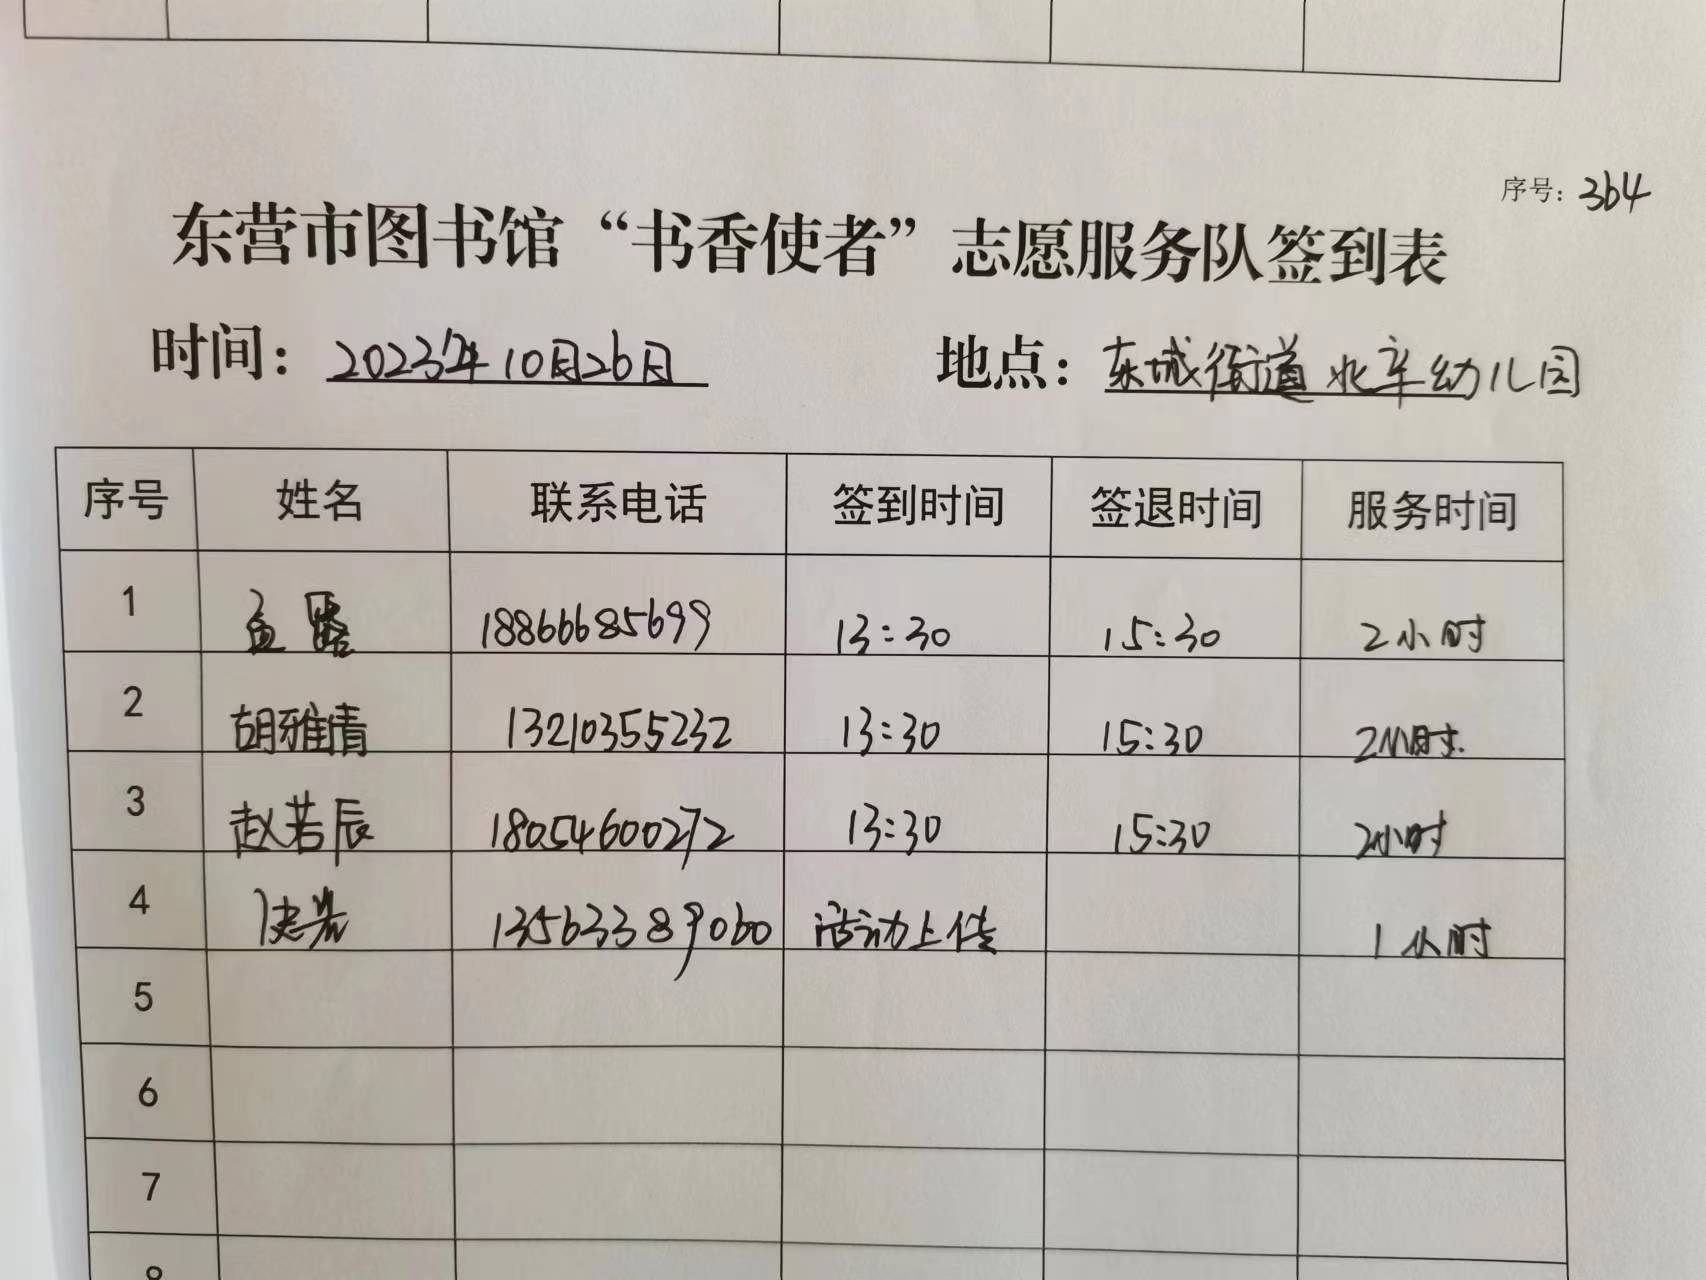 序号：364
东营市图书馆“书香使者”志愿服务队签到表
时间：2023年10月26日 地点：东城街道水车幼儿园
序号 姓名 联系电话 签到时间 签退时间 服务时间
1 孟 18866685699 13:30 15:30 2小时
2 胡雅倩 13210355232 13:30 15:30 2小时.
3 赵若辰 18054600272 13:30 15:30 2小时
4 13563389060 活动上传 1小时
5
6
7
8